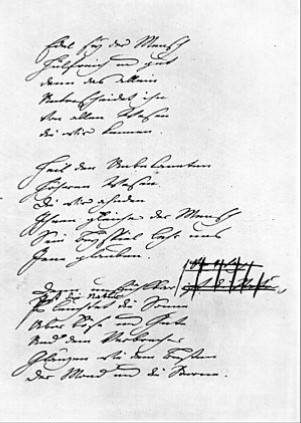 Edel sey der Mensch
Hülfreich und gut
denn das allein
Unterscheidet ihn
Von allen Wesen
die wir kennen.
Heil den Unbekannten
Höhern Wesen
Die wir ahnden
Ihnen gleiche der Mensch
Sein Beyspiel lehr uns
Jene glauben.
Denn unfühlend
ist die Natur
Es leuchtet die Sonne
Über Böse und Gute
Und dem Verbrecher
Glänzen wie dem Besten
Der Mond und die Sterne.